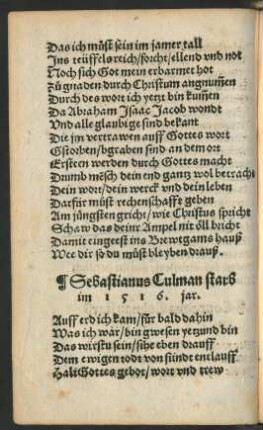 Das ich můst sein im jamer tall
Jns teüffels reich/forcht/ellend vnd not
Noch sich Got mein erbarmet hot
Zů gnaden durch Christum angnum̃en
Durch des wort ich yetzt bin kum̃en
Da Abraham Jsaac Jacob wondt
Vnd alle glaubige sind bekant
Die jm vertrawen auff Gottes wort
Gstorben/bgraben sind an dem ort
Ersteen werden durch Gottes macht
Drumb mẽsch dein end gantz wol betracht
Dein wort/dein werck vnd dein leben
Darfür můst rechenschafft geben
Am jüngsten gricht/wie Christus spricht
Schaw das deinr Ampel nit öll bricht
Damit eingeest ins Brewtgams hauß
Wee dir so du můst bleyben drauß.
¶ Sebastianus Culman starb
im 1 5 1 6. jar.
Auff erd ich kam/für bald dahin
Was ich war/bin gwesen yetzund bin
Das wirstu sein/sihe eben drauff
Dem ewigen todt von sündt entlauff
Halt Gottes gebot/wort vnd trew